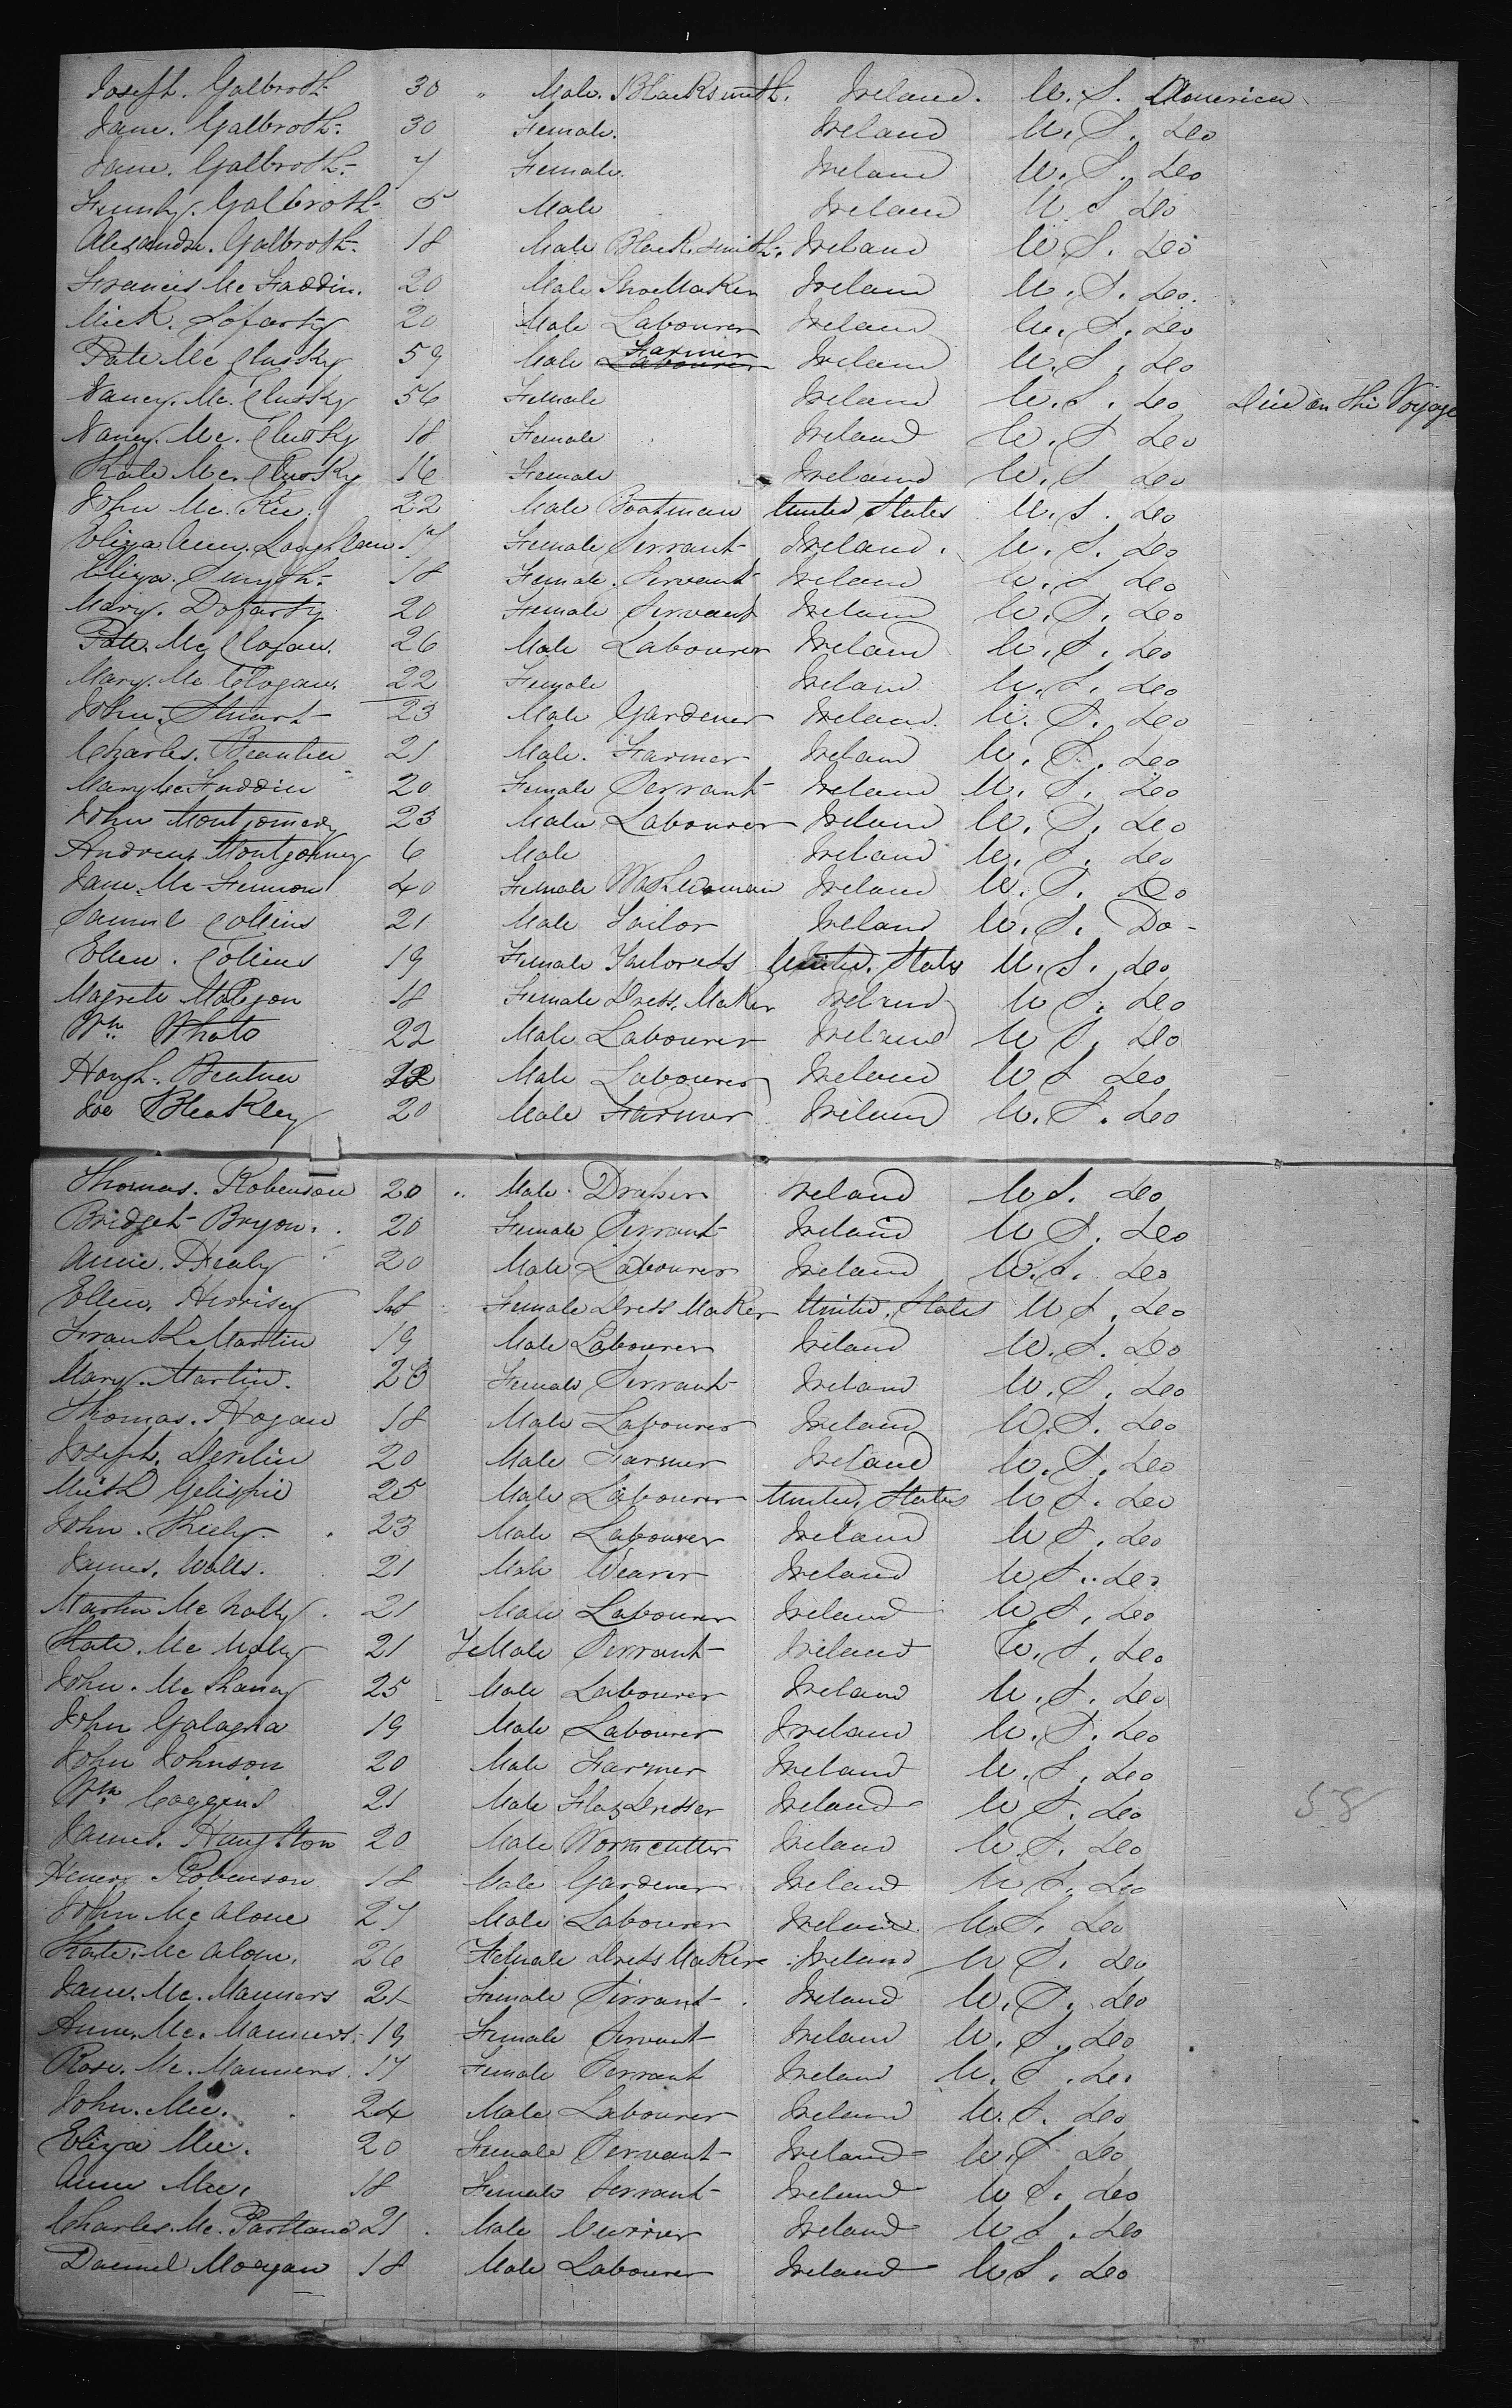 Joseph. Galbroth 30 " Male. Blacksmith. Ireland. U. S. America
Jane. Galbroth 30 Female. Ireland U. S. Do
Jane. Galbroth 7 Female. Ireland U. S. Do
Galbroth 5 Male Ireland U. S Do
Alexandre. Galbroth 18 Male Blacksmith. Ireland U. S. Do
Francis Mc Faddin. 20 Male Shoe Maker Ireland U. S. Do.
Mick. Lofarty 20 Male Labourer Ireland U. S. Do
Pate Mc Clussky 59 Male Labourer Farmer Ireland U. S. Do
Nancy. Mc. Clussky 56 Female Ireland U. S. Do Died on the Voyage
Nancy. Mc. Clussky 18 Female Ireland U. S Do
Kate Mc. Clussky 16 Female Ireland U. S Do
John Mc. Kee. 22 Male Boatman United States U. S. Do
Eliza Ann. Loughlan 17 Female Servant Ireland. U. S. Do
Eliza. Smyth 18 Female. Servant Ireland U. S Do
Mary. Dofarty 20 Female Servant Ireland U. S. Do
Pate. Mc Clogan. 26 Male Labourer Ireland U. S. Do
Mary. Mc Clogan. 22 Female Ireland U. S. Do
John. Stuart 23 Male Gardener Ireland. U. S. Do
Charles. 21 Male. Farmer Ireland U. S. Do
Mary Mc Faddin 20 Female Servant Ireland U. S. Do
John Montgomery 23 Male Labourer Ireland U. S. Do
Andrew Montgomery 6 Male Ireland U. S. Do
Jane. Mc Fennon 40 Female Washwoman Ireland U. S. Do
Samuel Collins 21 Male Tailor Ireland U. S. Do
Ellen. Collins 19 Female Tailoress United. States U. S. Do
Magrete 18 Female Dress. Maker Ireland U S. Do
Wm. 22 Male Labourer Ireland U S. Do
Hough. Male Labourer Ireland U S Do
Joe Bleakley 20 Male Farmer Ireland U. S. Do
Thomas. Robenson 20 " Male. Draper Ireland U S. Do
Bridget Bryon. 20 Female Servant Ireland U S. Do
Annie. Healy 20 Male Labourer Ireland U. S. Do
Ellen. Herrisey 18 Female Dress Maker United. States U S. Do
Martin 19 Male Labourer Ireland U. S. Do
Mary. Martin. 23 Female Servant Ireland U. S. Do
Thomas. Hogan 18 Male Labourer Ireland U. S. Do
Joseph. Devlin 20 Male Farmer Ireland U. S. Do
Gelispie 25 Male Labourer United. States U S. Do
John. 23 Male Labourer Ireland U S. Do
James. Walls. 21 Male Weaver Ireland U S. Do
Martin Mc Nalty. 21 Male Labourer Ireland U S. Do
Kate. Mc Nalty 21 FeMale Servant Ireland U. S. Do
John. Mc Shaney 25 Male Labourer Ireland U. S. Do
John Galagha 19 Male Labourer Ireland U. S. Do
John Johnson 20 Male Farmer Ireland U. S. Do
Wm Coggins 21 Male Flax Dresser Ireland U S. Do
58
James. Haughton 20 Male Ireland U. S. Do
Henery Robenson 18 Male Gardener Ireland U S. Do
John Mc Alone 27 Male Labourer Ireland U. S. Do
Kate. Mc Alone. 26 Female Dress Maker Ireland U S. Do
Jane. Mc. Manners 21 Female Servant Ireland U. S. Do
Anne. Mc. Manners. 19 Female Servant Ireland U. S. Do
Rose. Mc. Manners. 17 Female Servant Ireland U. S. Do
John. Mee. 24 Male Labourer Ireland U. S. Do
Eliza Mee. 20 Female Servant Ireland U. S Do
Anne Mee. 18 Female Servant Ireland U S. Do
Charles. Mc. Partland 21. Male Currier Ireland U S. Do
Daniel Morgan 18 Male Labourer Ireland U S. Do